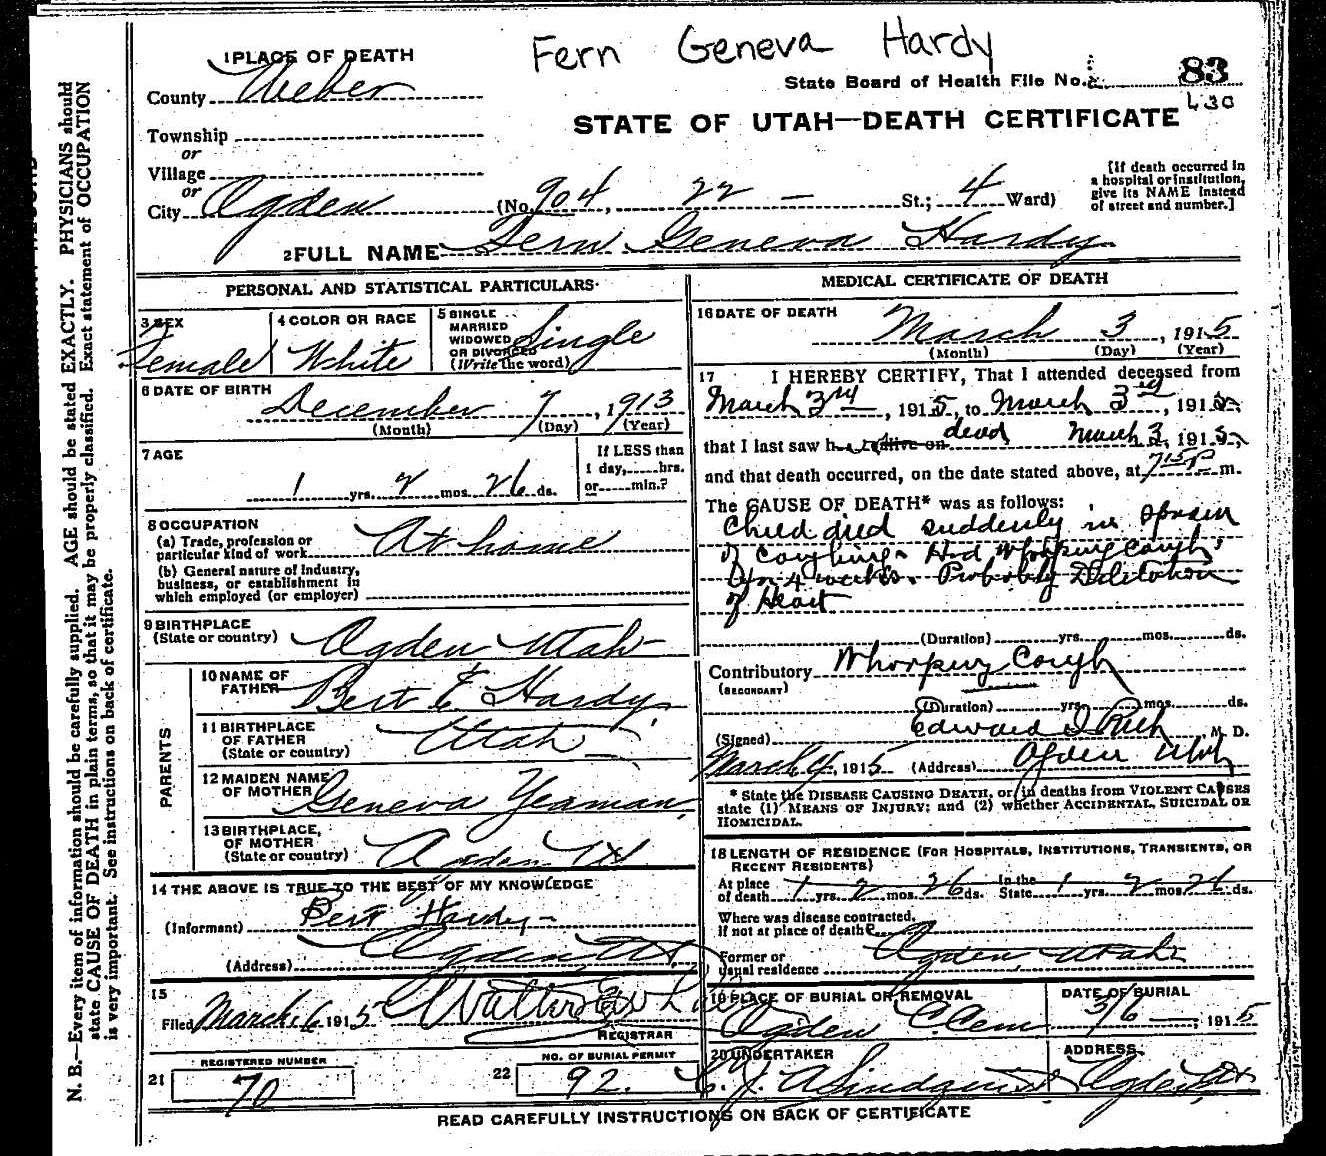 Fern Geneva Hardy
1 PLACE OF DEATH
County Weber
State Board of Health File No. 83
430
STATE OF UTAH—DEATH CERTIFICATE
Township
or
Village
or
City Ogden (No. 904, 22 — St.; 4 Ward)
[If death occurred in
a hospital or institution,
give its NAME instead
of street and number.]
2 FULL NAME Fern Geneva Hardy
PERSONAL AND STATISTICAL PARTICULARS
3 SEX
Female
4 COLOR OR RACE
White
5 SINGLE
MARRIED
WIDOWED
OR DIVORCED
(Write the word)
Single
6 DATE OF BIRTH
December 7, 1913
(Month) (Day) (Year)
7 AGE
1 yrs. 2 mos. 26 ds.
If LESS than
1 day, hrs.
or min.?
8 OCCUPATION
(a) Trade, profession or
particular kind of work At home
(b) General nature of industry,
business, or establishment in
which employed (or employer)
9 BIRTHPLACE
(State or country) Ogden Utah
PARENTS
10 NAME OF
FATHER Bert E Hardy
11 BIRTHPLACE
OF FATHER
(State or country) Utah
12 MAIDEN NAME
OF MOTHER Geneva Yeaman
13 BIRTHPLACE,
OF MOTHER
(State or country) Ogden Ut
14 THE ABOVE IS TRUE TO THE BEST OF MY KNOWLEDGE
(Informant) Bert Hardy
(Address) Ogden Ut
15
Filed March 6 1915
REGISTRAR
REGISTERED NUMBER
21 70
NO. OF BURIAL PERMIT
22 92.
MEDICAL CERTIFICATE OF DEATH
16 DATE OF DEATH
March 3, 1915
(Month) (Day) (Year)
17 I HEREBY CERTIFY, That I attended deceased from
March 3rd, 1915, to March 3rd, 1915,
that I last saw h alive on dead March 3, 1915,
and that death occurred, on the date stated above, at 7 15 P m.
The CAUSE OF DEATH* was as follows:
Child died suddenly in spasm
of coughing. Had Whooping Cough
for 4 weeks. Probably Dilitation
of Heart
(Duration) yrs. mos. ds.
Contributory Whooping Cough
(SECONDARY)
(Duration) yrs. mos. ds.
(Signed) Edward I Rich M. D.
March 4, 1915 (Address) Ogden Utah
* State the DISEASE CAUSING DEATH, or, in deaths from VIOLENT CAUSES
state (1) MEANS OF INJURY; and (2) whether ACCIDENTAL, SUICIDAL OR
HOMICIDAL.
18 LENGTH OF RESIDENCE (FOR HOSPITALS, INSTITUTIONS, TRANSIENTS, OR
RECENT RESIDENTS)
At place
of death 1 yrs. 2 mos. 26 ds. In the
State 1 yrs. 2 mos. 26 ds.
Where was disease contracted,
if not at place of death?
Former or
usual residence Ogden, Utah
19 PLACE OF BURIAL OR REMOVAL
Ogden C. Cem
DATE OF BURIAL
3/6, 1915
20 UNDERTAKER
C. J. A Lindquist
ADDRESS
Ogden Ut
READ CAREFULLY INSTRUCTIONS ON BACK OF CERTIFICATE
N. B.—Every item of information should be carefully supplied. AGE should be stated EXACTLY. PHYSICIANS should
state CAUSE OF DEATH in plain terms, so that it may be properly classified. Exact statement of OCCUPATION
is very important. See instructions on back of certificate.